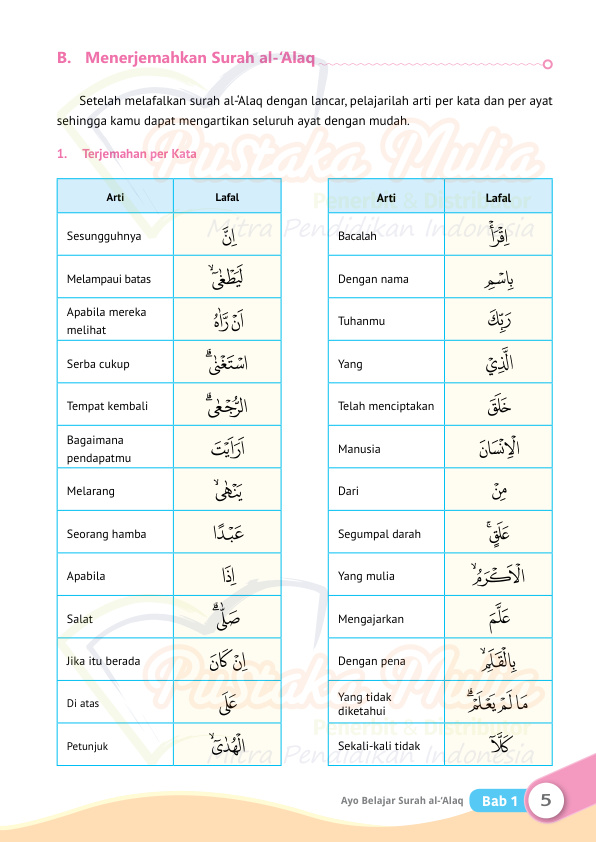 B. Menerjemahkan Surah al-‘Alaq
Setelah melafalkan surah al-‘Alaq dengan lancar, pelajarilah arti per kata dan per ayat
sehingga kamu dapat mengartikan seluruh ayat dengan mudah.
1. Terjemahan per Kata
Arti Lafal
Sesungguhnya اِنَّ
Melampaui batas لَيَطْغٰىٓۙ
Apabila mereka
melihat اَنْ رَّاٰهُ
Serba cukup اسْتَغْنٰىۗ
Tempat kembali الرُّجْعٰىۗ
Bagaimana
pendapatmu اَرَاَيْتَ
Melarang يَنْهٰىۙ
Seorang hamba عَبْدًا
Apabila اِذَا
Salat صَلّٰىۗ
Jika itu berada اِنْ كَانَ
Di atas عَلَى
Petunjuk الْهُدٰىٓۙ
Arti Lafal
Bacalah اِقْرَأْ
Dengan nama بِاسْمِ
Tuhanmu رَبِّكَ
Yang الَّذِيْ
Telah menciptakan خَلَقَ
Manusia الْاِنْسَانَ
Dari مِنْ
Segumpal darah عَلَقٍۚ
Yang mulia الْاَكْرَمُۙ
Mengajarkan عَلَّمَ
Dengan pena بِالْقَلَمِۙ
Yang tidak
diketahui مَا لَمْ يَعْلَمْۗ
Sekali-kali tidak كَلَّآ
Pustaka Mulia
Penerbit & Distributor
Mitra Pendidikan Indonesia
Pustaka Mulia
Penerbit & Distributor
Mitra Pendidikan Indonesia
Ayo Belajar Surah al-‘Alaq Bab 1 5